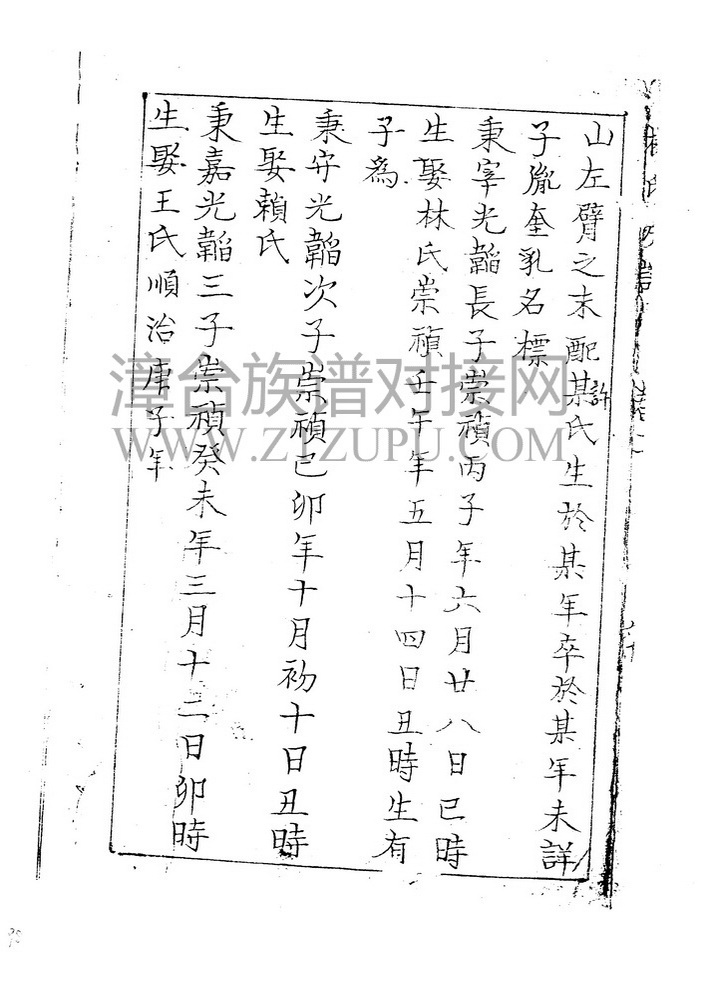 山左臂之末配某氏生於某年卒於某年未詳
許
子胤奎乳名標
秉宰光韜長子崇禎丙子年六月廿八日巳時
生娶林氏崇禎壬午年五月十四日丑時生有
子為
秉守光韜次子崇禎己卯年十月初十日丑時
生娶賴氏
秉嘉光韜三子崇禎癸未年三月十二日卯時
生娶王氏順治庚子年
漳台族谱对接网
WWW.ZTZUPU.COM